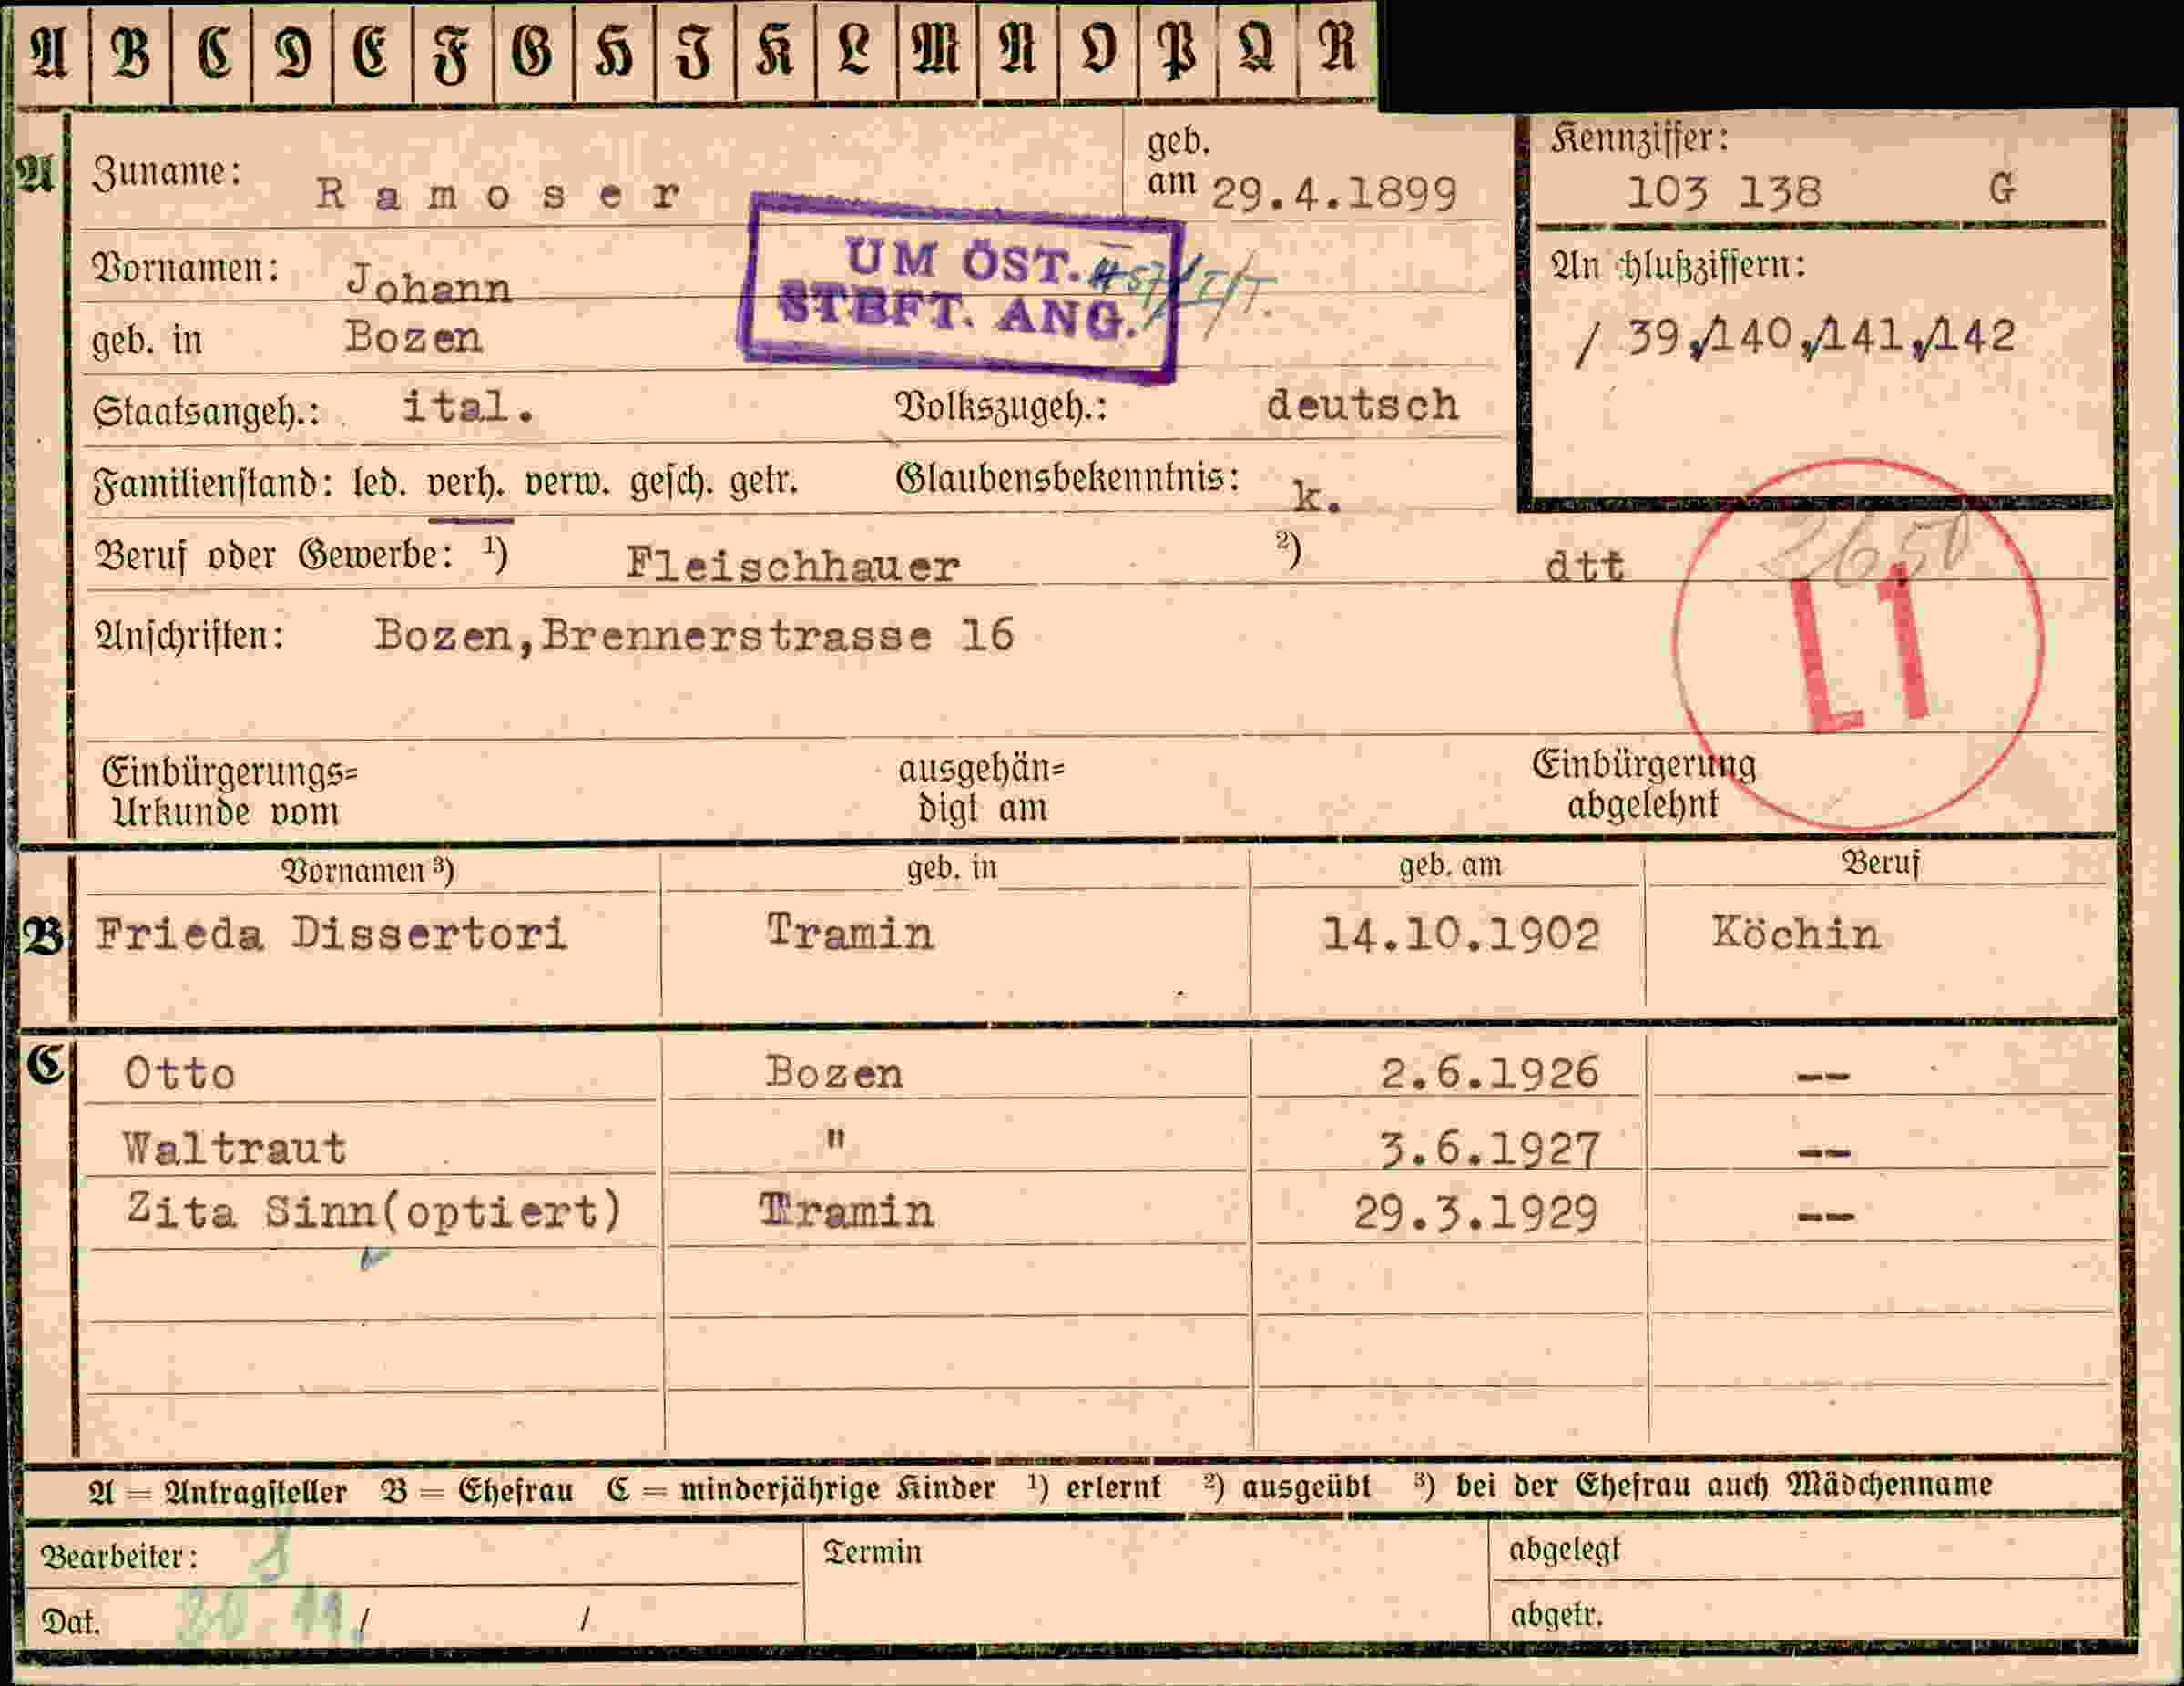 A B C D E F G H J K L M N O P Q R
A Zuname: Ramoser geb. am 29.4.1899 Kennziffer: 103 138 G
UM ÖST.
STBFT. ANG.
Vornamen: Johann An chlußziffern:
geb. in Bozen / 39,/140,/141,/142
Staatsangeh.: ital. Volkszugeh.: deutsch
Familienstand: led. verh. verw. gesch. getr. Glaubensbekenntnis: k.
2650
Beruf oder Gewerbe: ¹) Fleischhauer ²) dtt
L1
Anschriften: Bozen,Brennerstrasse 16
Einbürgerungs= ausgehän= Einbürgerung
Urkunde vom digt am abgelehnt
Vornamen ³) geb. in geb. am Beruf
B Frieda Dissertori Tramin 14.10.1902 Köchin
C Otto Bozen 2.6.1926 --
Waltraut " 3.6.1927 --
Zita Sinn(optiert) Tramin 29.3.1929 --
A = Antragsteller B = Ehefrau C = minderjährige Kinder ¹) erlernt ²) ausgeübt ³) bei der Ehefrau auch Mädchenname
Bearbeiter: Termin abgelegt
Dat. / / abgetr.